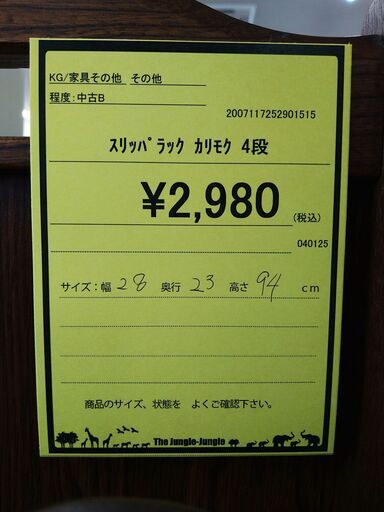 KG/家具その他 その他
程度:中古B
2007117252901515
ｽﾘｯﾊﾟﾗｯｸ ｶﾘﾓｸ 4段
¥2,980
(税込)
040125
サイズ:幅 28 奥行 23 高さ 94 cm
商品のサイズ、状態を よくご確認下さい。
The Jungle-Jungle